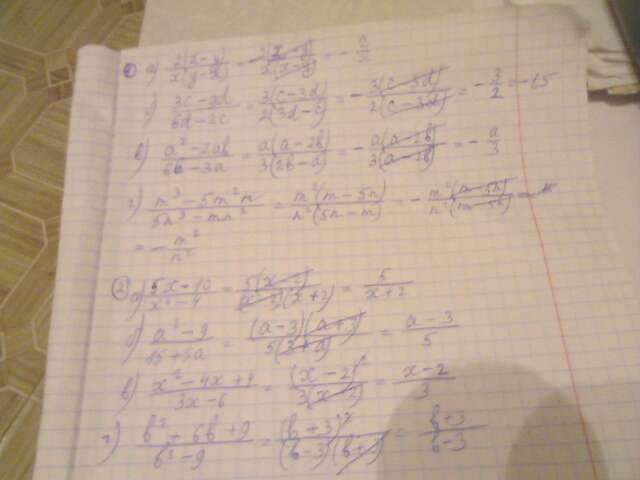 ① а) 2(x-y)/x(y-x) = -2(x-y)/x(x-y) = -2/x
б) 3c-9d/6d-2c = 3(c-3d)/2(3d-c) = -3(c-3d)/2(c-3d) = -3/2 = -1,5
в) a²-2ab/6b-3a = a(a-2b)/3(2b-a) = -a(a-2b)/3(a-2b) = -a/3
г) m³-5m²n/5n³-mn² = m²(m-5n)/n²(5n-m) = -m²(m-5n)/n²(m-5n) =
= -m²/n²
② а) 5x-10/x²-4 = 5(x-2)/(x-2)(x+2) = 5/x+2
б) a²-9/15+5a = (a-3)(a+3)/5(3+a) = a-3/5
в) x²-4x+4/3x-6 = (x-2)²/3(x-2) = x-2/3
г) b²+6b+9/b²-9 = (b+3)²/(b-3)(b+3) = b+3/b-3